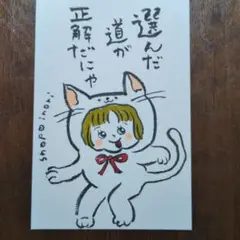 選んだ
道が
正解だにゃ
shopo inori